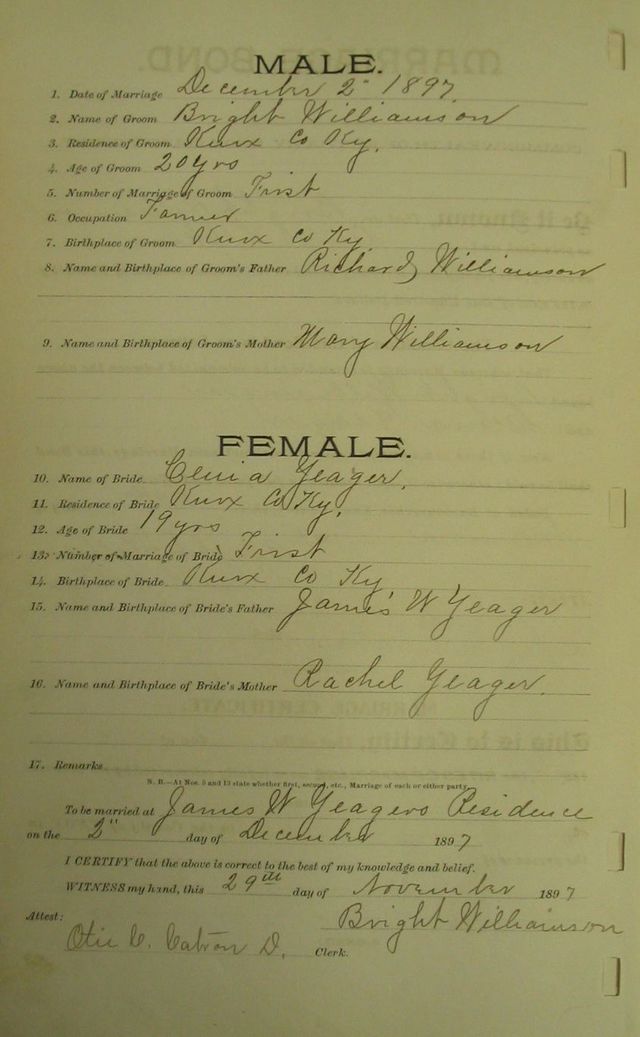 MALE.
1. Date of Marriage December 2" 1897
2. Name of Groom Bright Williamson
3. Residence of Groom Knox Co Ky.
4. Age of Groom 20 yrs
5. Number of Marriage of Groom First
6. Occupation Farmer
7. Birthplace of Groom Knox Co Ky
8. Name and Birthplace of Groom's Father Richard Williamson
9. Name and Birthplace of Groom's Mother Mary Williamson
FEMALE.
10. Name of Bride Yeager.
11. Residence of Bride Knox Co Ky.
12. Age of Bride 19 yrs
13. Number of Marriage of Bride First
14. Birthplace of Bride Knox Co Ky
15. Name and Birthplace of Bride's Father James W Yeager
16. Name and Birthplace of Bride's Mother Rachel Yeager.
17. Remarks
N. B.—At Nos. 5 and 13 state whether first, second, etc., Marriage of each or either party.
To be married at James W Yeagers Residence
on the 2" day of December 1897
I CERTIFY that the above is correct to the best of my knowledge and belief.
WITNESS my hand, this 29th day of November 1897
Bright Williamson
Attest:
C. Catron D. Clerk.